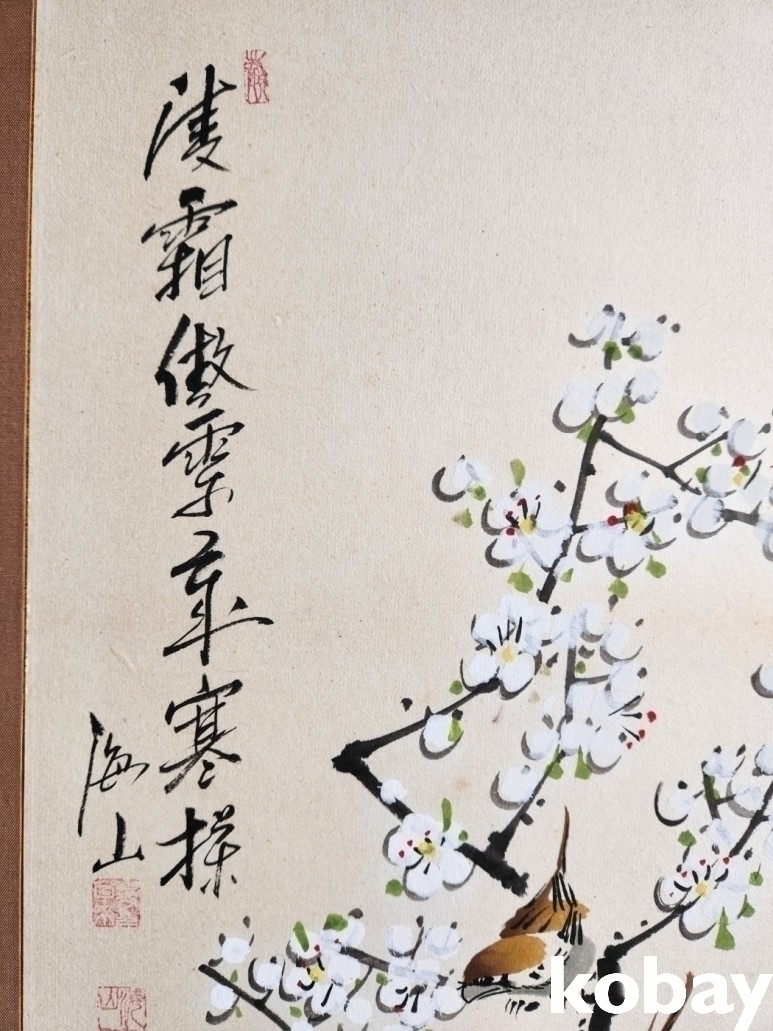 凌霜傲雪葆寒操
海山
kobay